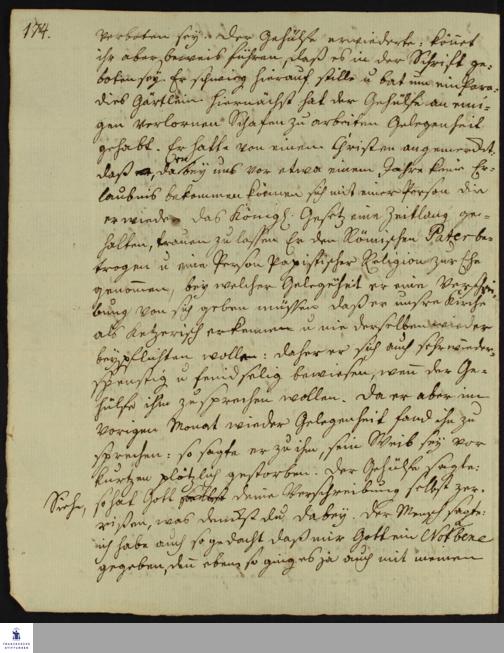 174.
verboten sey. Der Gehülfe erwiederte: könnet
ihr aber beweis führen, daß es in der Schrift ge-
boten sey. Er schwieg hierauf stille u. bat um ein Para-
dies Gärtlein hiernächst hat der Gehülfe an eini-
gen verlornen Schafen zu arbeiten Gelegenheit
gehabt. Er hatte von einem Christen angemerckt,
daß er, da er bey uns vor etwa einem Jahre keine Er-
laubnis bekommen können sich mit einer Person die
er wieder das Königl: Gesetz eine Zeitlang ge-
halten, trauen zu lassen Er den Römischen Pater be-
trogen u. eine Person Papistischer Religion zur Ehe
genommen, bey welcher Gelegenheit er eine Verschrei-
bung von sich geben müssen daß er unsre Kirche
als Ketzerisch erkennen u. nie derselben wieder
beypflichten wolle: daher er sich auch sehr wieder-
spenstig u. feindselig bewiesen, wenn der Ge-
hülfe ihm zusprechen wollen. Da er aber im
vorigen Monat wieder Gelegenheit fand ihn zu
sprechen: so sagte er zu ihm, sein Weib sey vor
kurtzen plötzlich gestorben. Der Gehülfe sagte:
Siehe, so hat Gott deine Verschreibung selbst zer-
rißen, was denckst du dabey. Der Mensch sagte:
ich habe auch so gedacht daß mir Gott ein Notbene
gegeben, denn eben so ging es ja auch mit meinem
FRANCKESCHE
STIFTUNGEN